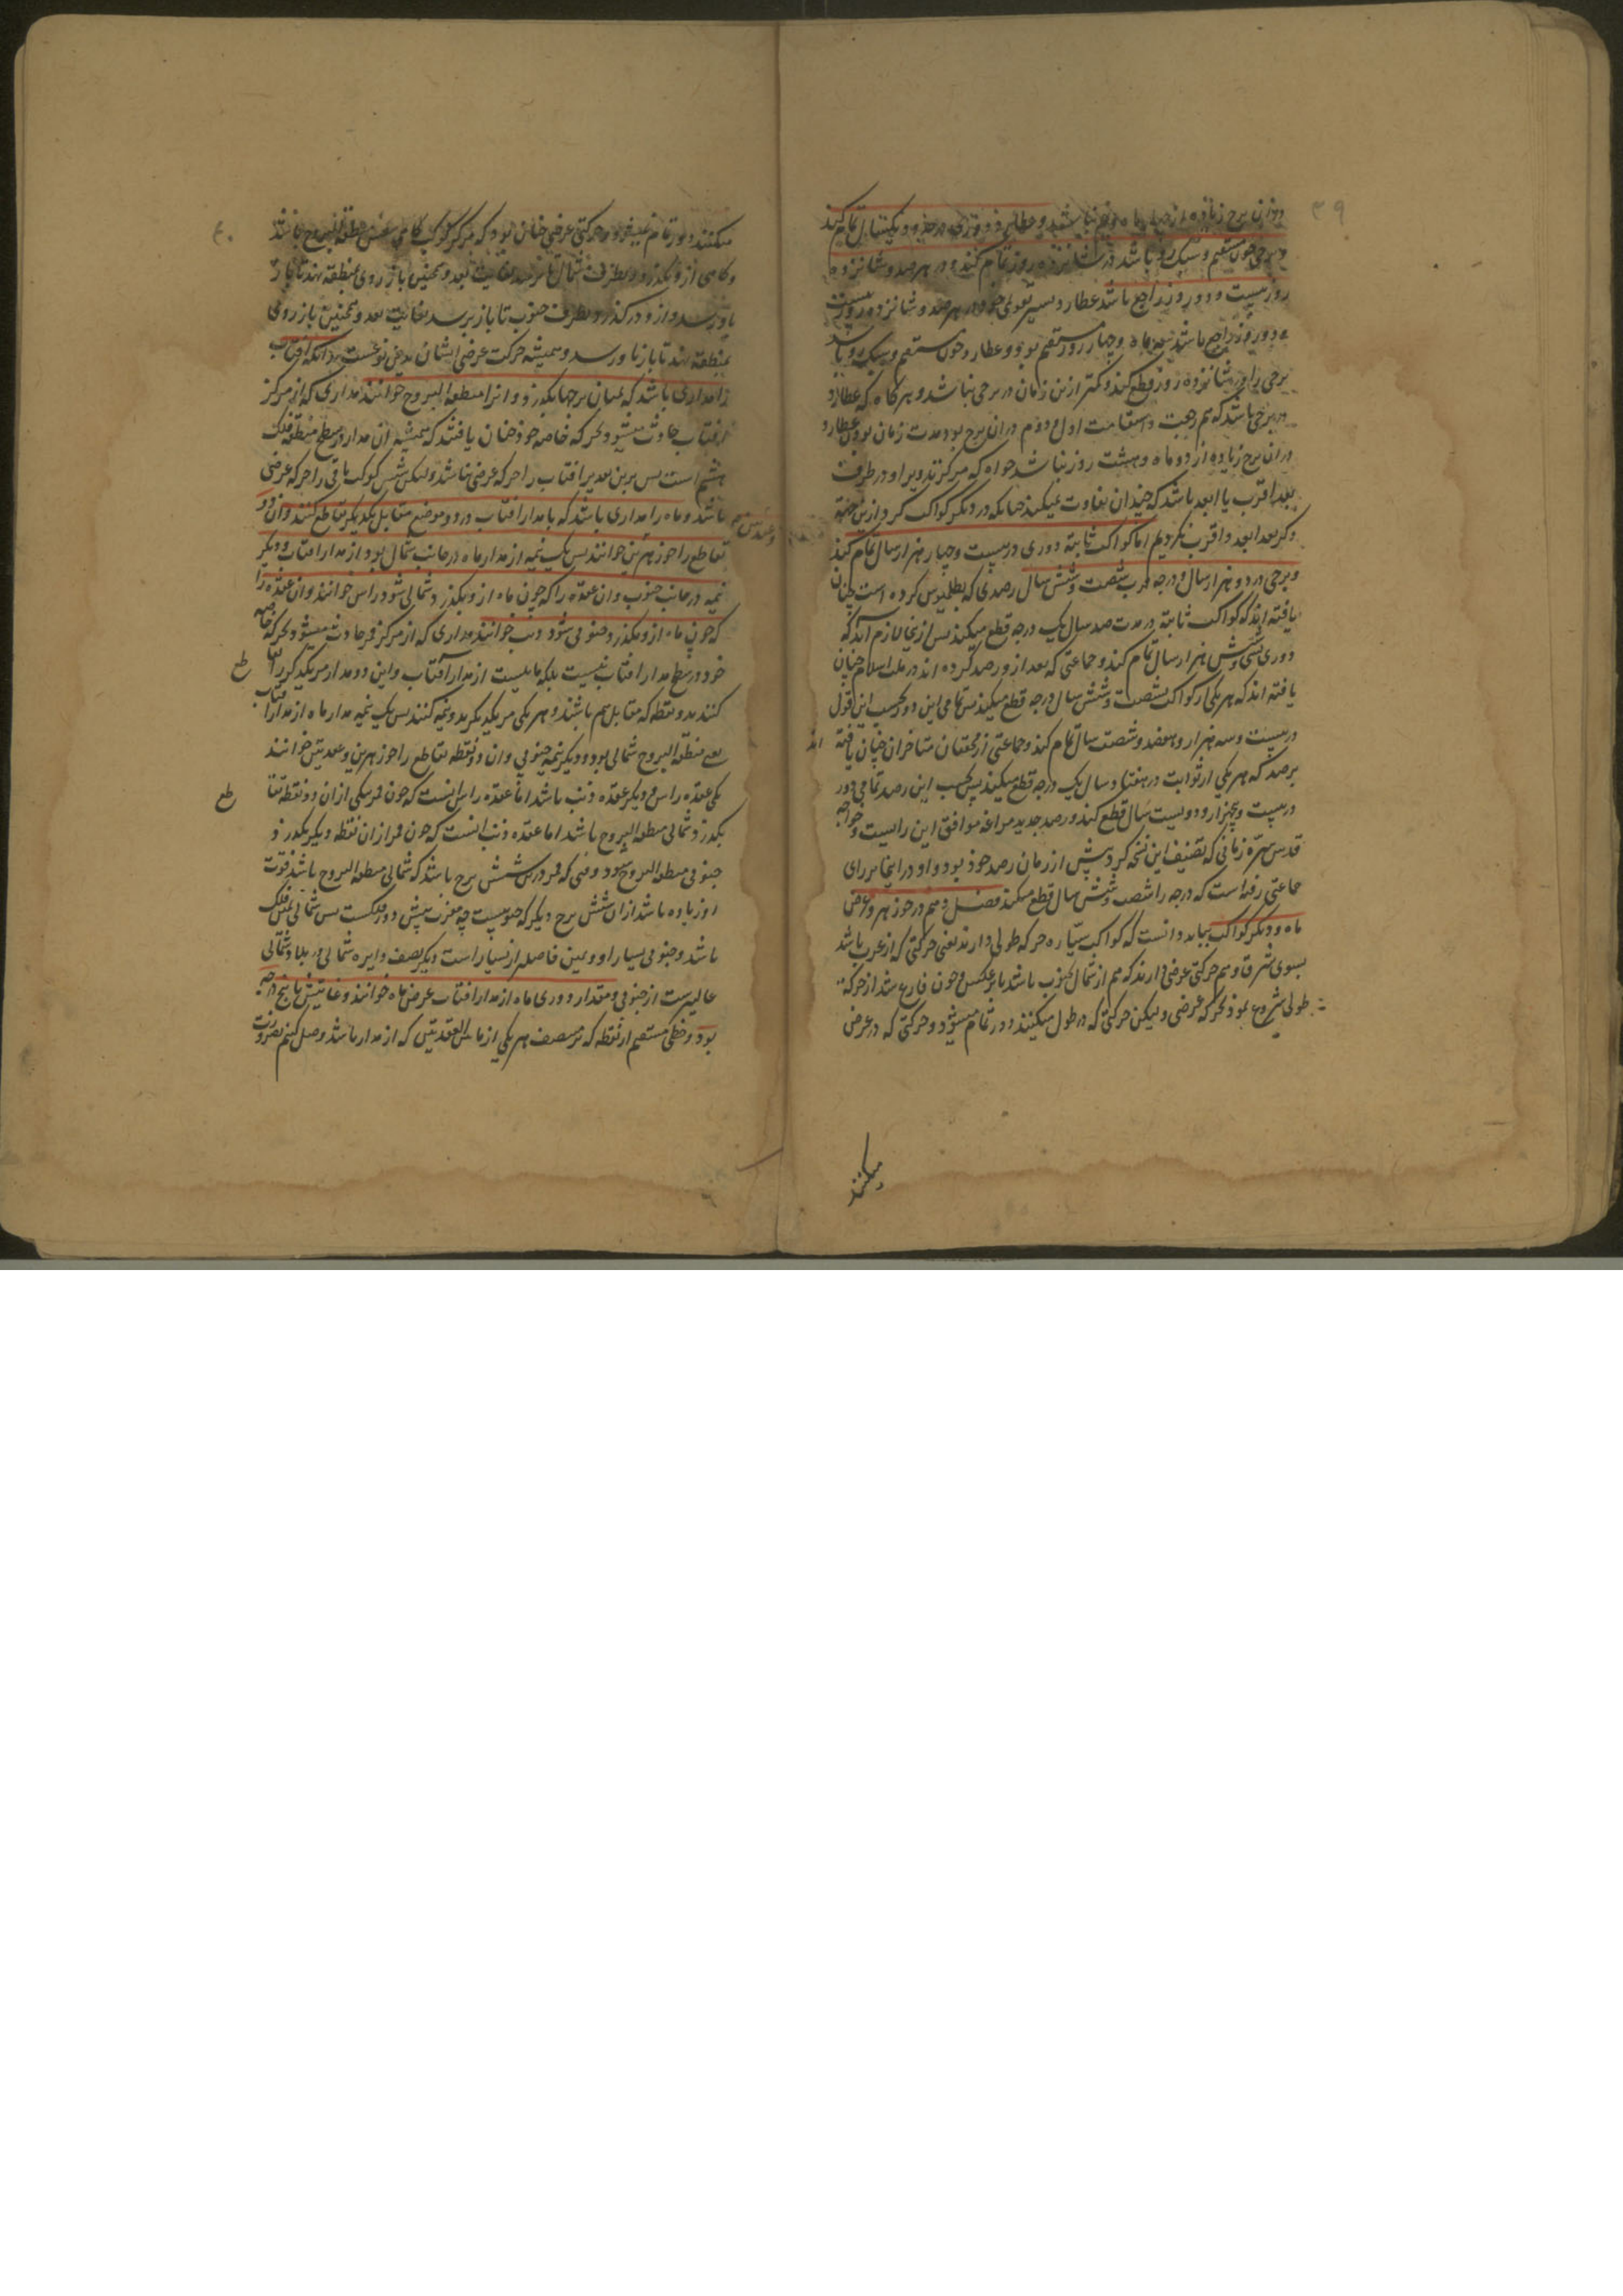 ۳۹
دران برج زیاده از چهار ماه و نیم نباشد و عطارد دوری در حدود یکسال تمام کند
و برجی چون مستقیم و سبک رو باشد در شانزده روز تمام کند و در هر صد و شانزده
روز بیست و دو روز راجع باشد عطارد مسیر در هر صد و شانزده روز بیست
و دو روز راجع باشد سه ماه و چهار روز مستقیم بود و عطارد چون مستقیم و سبک رو باشد
برجی را در شانزده روز قطع کند و کمتر ازین زمان در برجی نباشد و هر کاه که عطارد
در برجی باشد که هم رجعت و استقامت اول و دوم دران برج بود مدت زمان بودن عطارد
دران برج زیاده از دو ماه و هشت روز نباشد خواه که مرکز تدویر او در طرف
بعد اقرب یا ابعد باشد که چندان تفاوت نمیکند چنانکه در دیکر کواکب کرد ازین جهة
ذکر بعد ابعد و اقرب نکردیم اما کواکب ثابته دوری در بیست و چهار هزار سال تمام کند
و برجی در دو هزار سال و درجه در شصت و شش سال رصدی که بطلمیوس کرده است چنان
یافته اند که کواکب ثابته در مدت صد سال یک درجه قطع میکند پس ازینجا لازم آید که
دوری بسی و شش هزار سال تمام کند و جماعتی که بعد از و رصد کرده اند در ملت اسلام چنان
یافته اند که هر یکی از کواکب بشصت و شش سال درجه قطع میکند پس تمامی این دور بحسب این قول
در بیست و سه هزار و هفصد و شصت سال تمام کند و جماعتی از محققان متاخران چنان یافته اند
برصد که هر یکی از ثوابت در هفتاد سال یک درجه قطع میکند پس بحسب این رصد تمامی دور
در بیست و پنج هزار و دویست سال قطع کند و رصد جدید مراغه موافق این رایست و خواجه
قدس سره زمانی که تصنیف این نسخه کرد پیش از زمان رصد خود بود و او در اینجا بر رای
جماعتی رفته است که درجه را شصت و شش سال قطع میکند فصل نهم در جوزهر و عرض
ماه و دیکر کواکب بباید دانست که کواکب سیاره حرکه طولی دارند یعنی حرکتی که از غرب باشد
بسوی شرق و هم حرکتی عرضی دارند که هم از شمال بجنوب باشد یا برعکس و چون فارغ شد از حرکة
طولی شروع نمود بحرکه عرضی و لیکن حرکتی که در طول میکنند دور تمام میشود و حرکتی که در عرض
میکنند
۴۰
میکنند دور تمام نمیشود و حرکتی عرضی چنان بود که مرکز کوکب کاهی در نفس منطقة البروج باشد
و کاهی از و بکذرد و بطرف شمال تا برسد بغایت بعد و همچنین باز روی بمنطقه نهد تا باز
باو رسد و ازو درکذرد بطرف جنوب تا باز برسد بغایت بعد و همچنین باز روی
بمنطقه نهد تا باز باو رسد و همیشه حرکت عرضی ایشان بدین نوعست بدانکه افتاب
را مداری باشد که بمیان برجها بکذرد و انرا منطقه البروج خوانند مداری که از مرکز
افتاب حادث میشود بحرکه خاصه خود چنان یافتند که همیشه ان مدار در سطح منطقه فلک
هشتم است پس برین تقدیر افتاب را حرکه عرضی نباشد و لیکن شش کوکب باقی را حرکه عرضی
باشد و ماه را مداری باشد که با مدار افتاب در دو موضع متقابل یکدیکر تقاطع کنند و ان دو
تقاطع را جوزهرین خوانند پس یک نیمه از مدار ماه در جانب شمال بود از مدار افتاب و دیکر
نیمه در جانب جنوب و ان عقده را که چون ماه از و بکذرد شمالی شود راس خوانند و ان عقده را
که چون ماه از و بکذرد جنوبی شود ذنب خوانند مداری که از مرکز قمر حادث میشود بحرکه خاصه
خود در سطح مدار افتاب نیست بلکه مایلست از مدار آفتاب و این دو مدار مر یکدیکر را تقاطع
کنند بدو نقطه که مقابل هم باشند و هر یکی مر یکدیکر بدو نیمه کنند پس یک نیمه مدار ماه از مدار افتاب
یعنی منطقه البروج شمالی بود و دیکر نیمه جنوبی و ان دو نقطه تقاطع را جوزهرین و عقدتین خوانند
یکی عقده راس و دیکر عقده ذنب باشد اما عقده راس انست که چون قمر یکی از ان دو نقطه تقاطع
بکذرد شمالی منطقه البروج باشد اما عقده ذنب انست که چون قمر ازان نقطه دیکر بکذرد
جنوبی منطقه البروج شود و وقتی که قمر در شش برج باشد که شمالی منطقه البروج باشد قوت
او زیاده باشد ازان شش برج دیکر که جنوبیست
باشد و جنوبی یسار او و همین فاصله از یسار است دیکر نصف دایره شمالی و شمالی
عالیست از جنوبی و مقدار دوری ماه از مدار افتاب عرض ماه خوانند و غایتش تا پنج درجه
بود و خطی مستقیم از نقطه که بر منتصف هر یکی از ما بین العقدتین که از مدار باشد وصل کنیم بضرورت